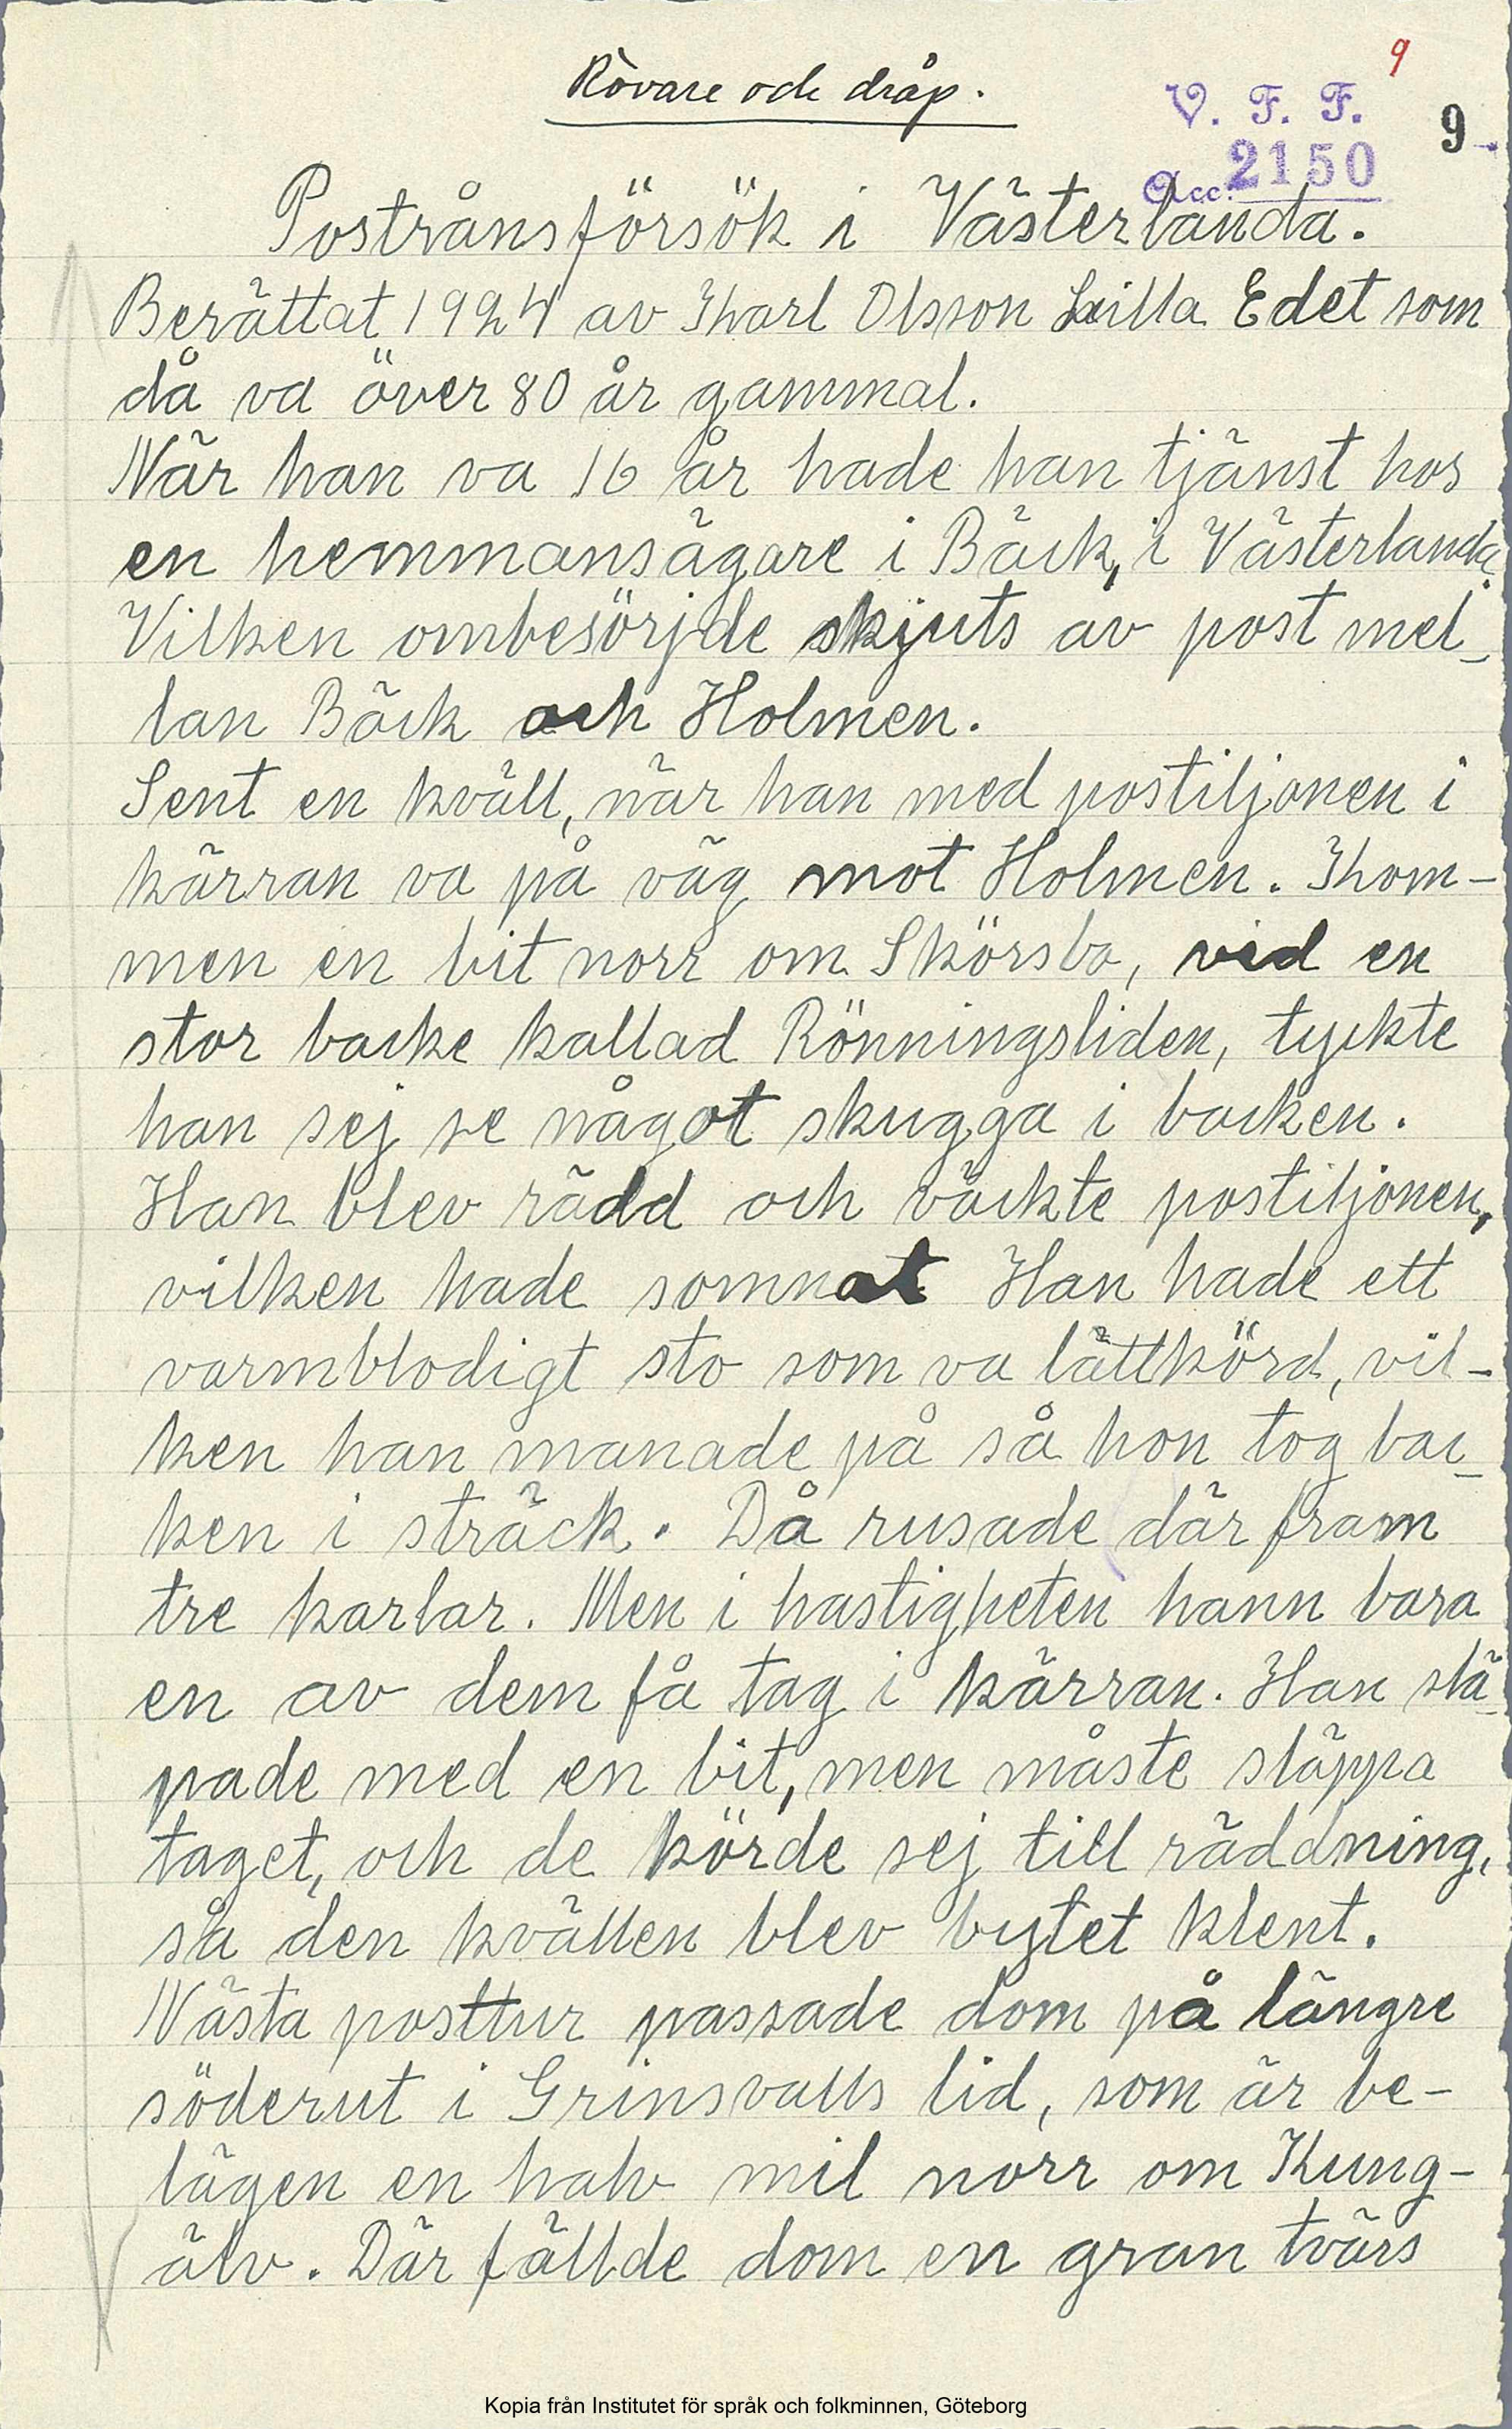 9
Rövare och dråp.
V. F. F.
9
Acc. 2150
Postrånsförsök i Västerlanda.
Berättat 1924 av Kharl Olsson Lilla Edet som
då va över 80 år gammal.
När han va 16 år hade han tjänst hos
en hemmansägare i Bäck, i Västerlanda.
Vilken ombesörjde skjuts av post mel-
lan Bäck och Holmen.
Sent en kväll, när han med postiljonen i
kärran va på väg mot Holmen. Khom-
men en bit norr om Skörsbo, vid en
stor backe kallad Rönningsliden, tyckte
han sej se något skugga i backen.
Han blev rädd och väckte postiljonen,
vilken hade somnat Han hade ett
varmblodigt sto som va lättkörd, vil-
ken han manade på så hon tog bac-
ken i sträck. Då rusade där fram
tre karlar. Men i hastigheten hann bara
en av dem få tag i kärran. Han slä-
pade med en bit, men måste släppa
taget, och de körde sej till räddning,
så den kvällen blev bytet klent.
Nästa posttur passade dom på längre
söderut i Grinsvalls lid, som är be-
lägen en halv mil norr om Kung-
älv. Där fällde dom en gran tvärs
Kopia från Institutet för språk och folkminnen, Göteborg